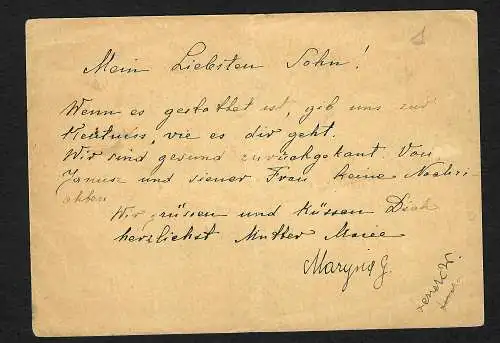 1
Mein Liebsten Sohn!
Wenn es gestattet ist, gib uns zur
Kentniss, wie es dir geht.
Wir sind gesund zurückgekant. Von
Janusz und siener Frau keine Nachri-
chten
Wir grüssen und küssen Dich
herzlichst Mutter
Maryna G.